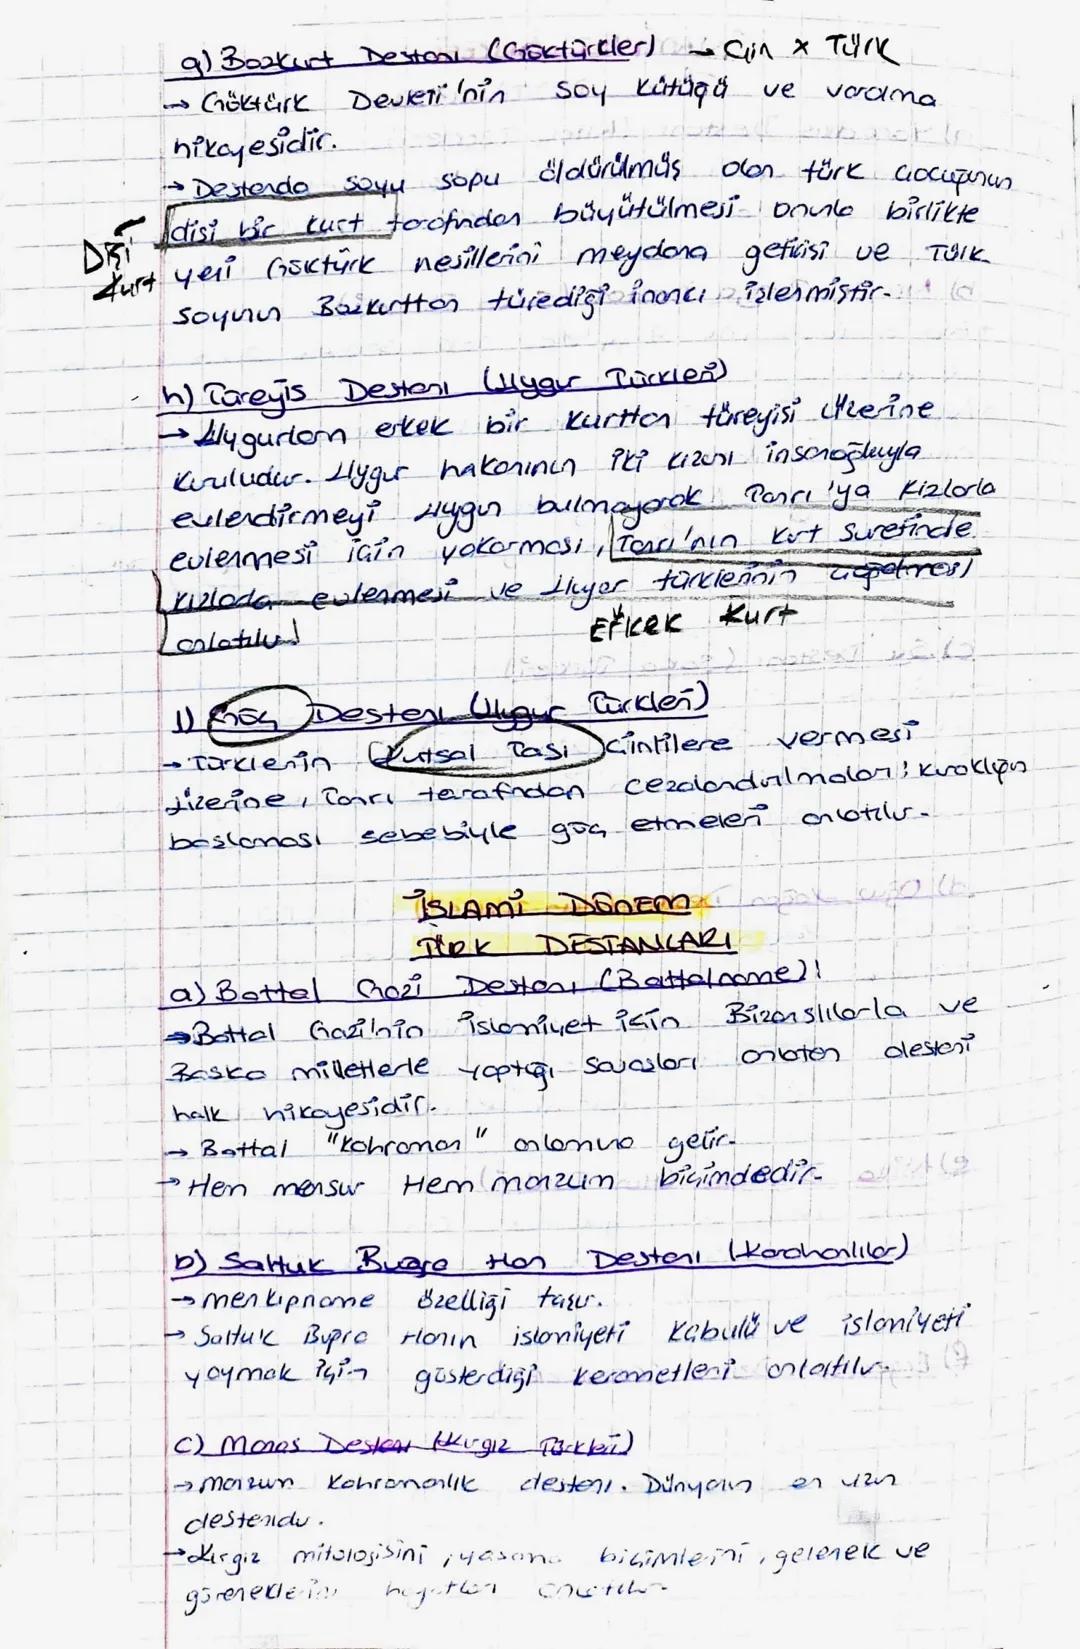 g) Bozkurt Destanı (Göktürkler) → Çin x Türk
→ Göktürk Devleti'nin soy kütüğü ve varolma
hikayesidir.
→ Destanda soyu sopu öldürülmüş olan türk çocuğunun
dişi bir kurt tarafından büyütülmesi onunla birlikte
Dişi Kurt
yeni Göktürk nesillerini meydana getirişi ve Türk
soyunun Bozkurttan türediği inancı işlenmiştir.
h) Türeyiş Destanı (Uygur Türkleri)
→ Uygurların erkek bir kurttan türeyişi üzerine
kuruludur. Uygur hakanının iki kızını insanoğluyla
evlendirmeyi uygun bulmayarak Tanrı'ya kızlarla
evlenmesi için yakarması, Tanrı'nın kurt suretinde
kızlarla evlenmesi ve Uygur türklerinin çoğalması
anlatılır.
Erkek Kurt
ı) Göç Destanı (Uygur Türkleri)
→ Türklerin Kutsal Taşı Çinlilere vermesi
üzerine, Tanrı tarafından cezalandırılmaları; kuraklığın
başlaması sebebiyle göç etmeleri anlatılır.
İSLAMİ DÖNEM
TÜRK DESTANLARI
a) Battal Gazi Destanı (Battalname):
→ Battal Gazi'nin islamiyet için Bizanslılarla ve
Başka milletlerle yaptığı savaşları anlatan destani
halk hikayesidir.
→ Battal "kahraman" anlamına gelir.
→ Hem mensur Hem manzum biçimdedir.
b) Saltuk Buğra Han Destanı (Karahanlılar)
→ menkıpname özelliği taşır.
→ Saltuk Buğra Hanın islamiyeti kabulü ve islamiyeti
yaymak için gösterdiği kerametleri anlatılır.
c) Manas Destanı (Kırgız Türkleri)
→ manzum kahramanlık destanı. Dünyanın en uzun
destanıdır.
→ Kırgız mitolojisini, yaşama biçimlerini, gelenek ve
göreneklerini hayatları anlatılır.